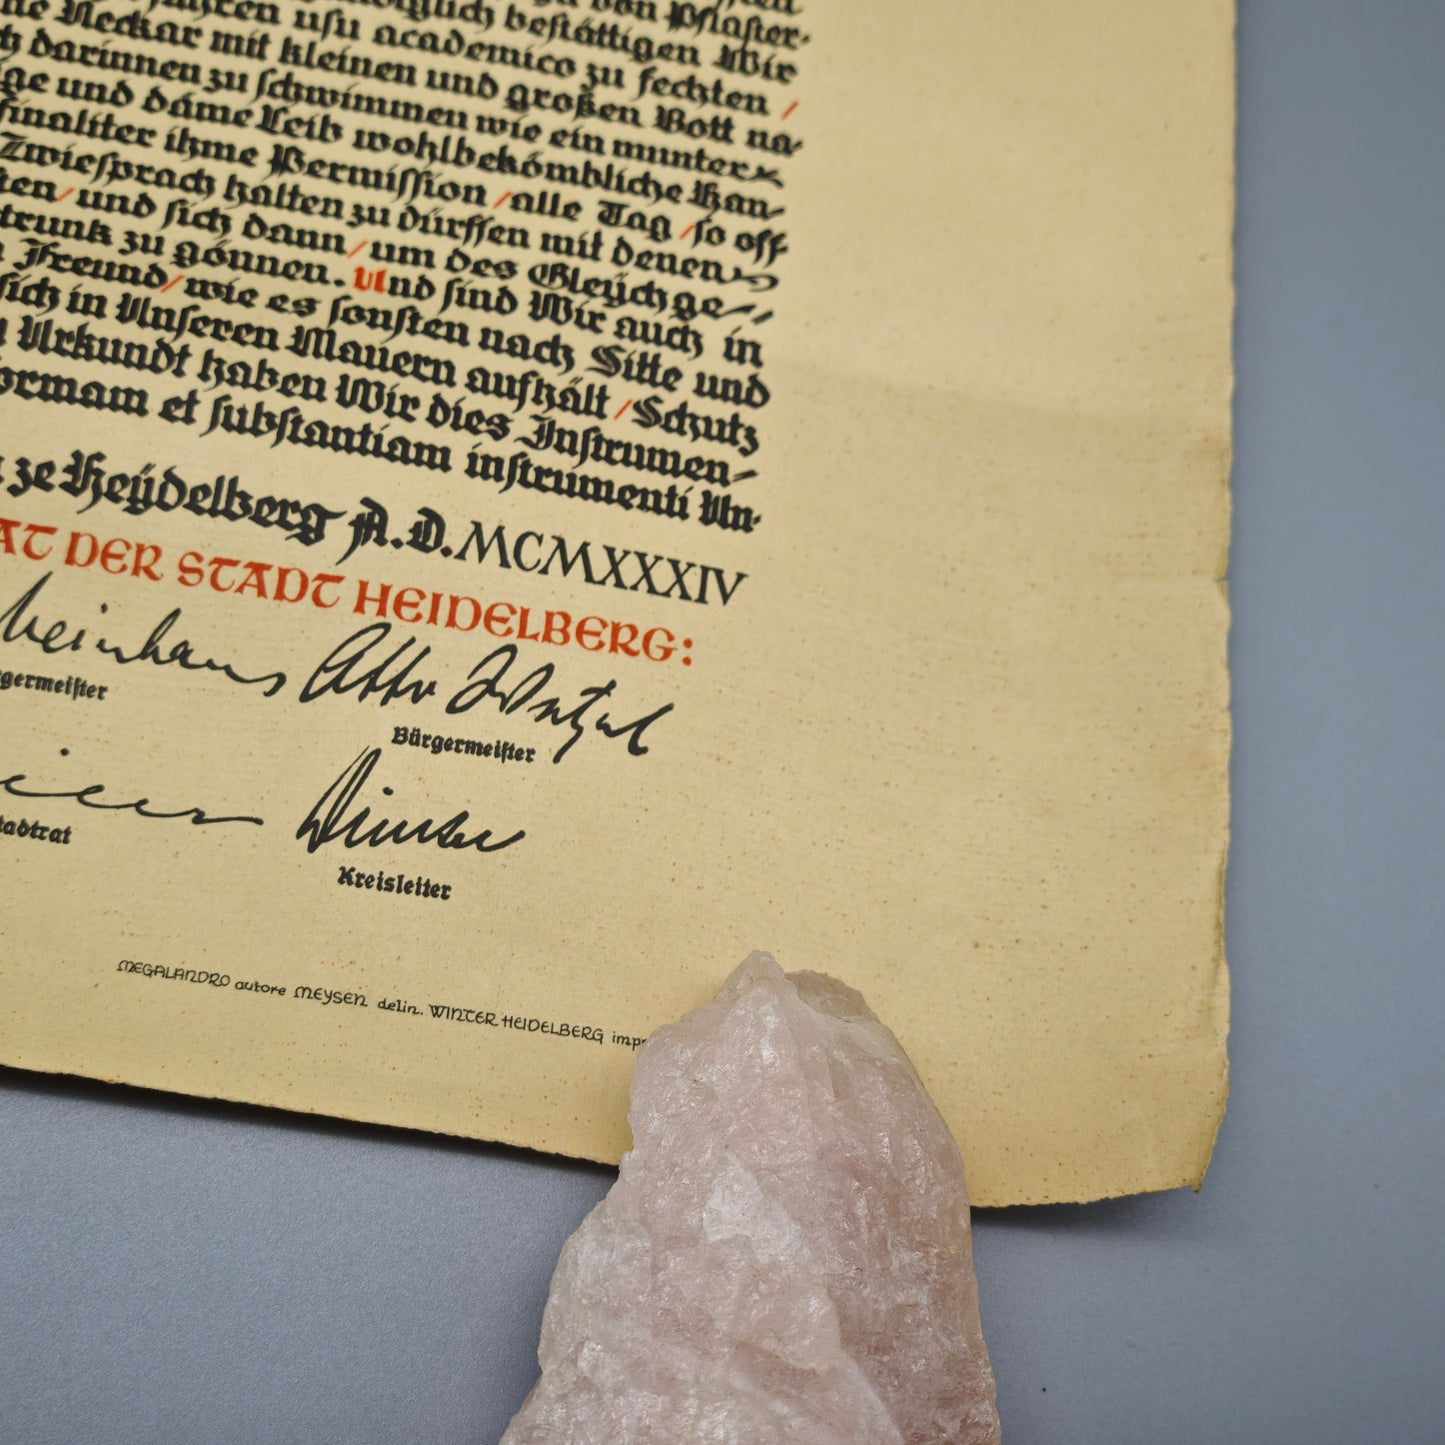 von Pflaster-
usu academico zu fechten /
bestättigen Wir
Neckar mit kleinen und großen Bott na-
darinnen zu schwimmen wie ein munter
und däme Leib wohlbekömbliche Han-
finaliter ihme Permission / alle Tag / so oft
Zwiesprach halten zu dürffen mit denen
ten / und sich dann / um des Gleÿch ge-
trunk zu gönnen. Und sind Wir auch in
Freund / wie es sonsten nach Sitte und
sich in Unseren Mauern aufhält / Schutz
Urkundt haben Wir dies Instrumen-
formam et substantiam instrumenti Un-
ze Heÿdelberg A.D. MCMXXXIV
AT DER STADT HEIDELBERG:
Neinhaus Otto Wetzel
germeister
Bürgermeister
Kreisleiter
tadtrat
MEGALANDRO autore MEYSEN delin. WINTER HEIDELBERG impr